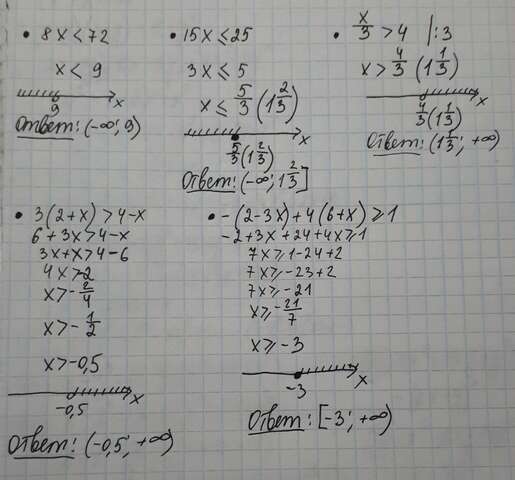 • 8x < 72
x < 9
9 x
Ответ: (-∞; 9)
• 15x ≤ 25
3x ≤ 5
x ≤ 5/3 (1 2/3)
5/3 (1 2/3) x
Ответ: (-∞; 1 2/3]
• x/3 > 4 |:3
x > 4/3 (1 1/3)
4/3 (1 1/3) x
Ответ: (1 1/3; +∞)
• 3(2+x) > 4-x
6+3x > 4-x
3x+x > 4-6
4x > -2
x > -2/4
x > -1/2
x > -0,5
-0,5 x
Ответ: (-0,5; +∞)
• -(2-3x)+4(6+x) ≥ 1
-2+3x+24+4x ≥ 1
7x ≥ 1-24+2
7x ≥ -23+2
7x ≥ -21
x ≥ -21/7
x ≥ -3
-3 x
Ответ: [-3; +∞)